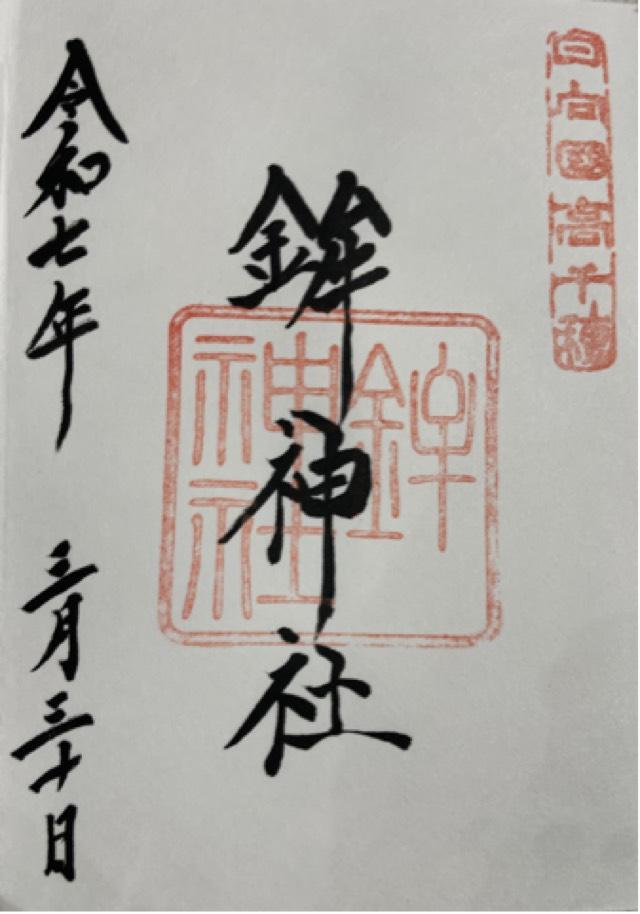 日向國高千穂
鉾神社
鉾神社
令和七年 三月三十日